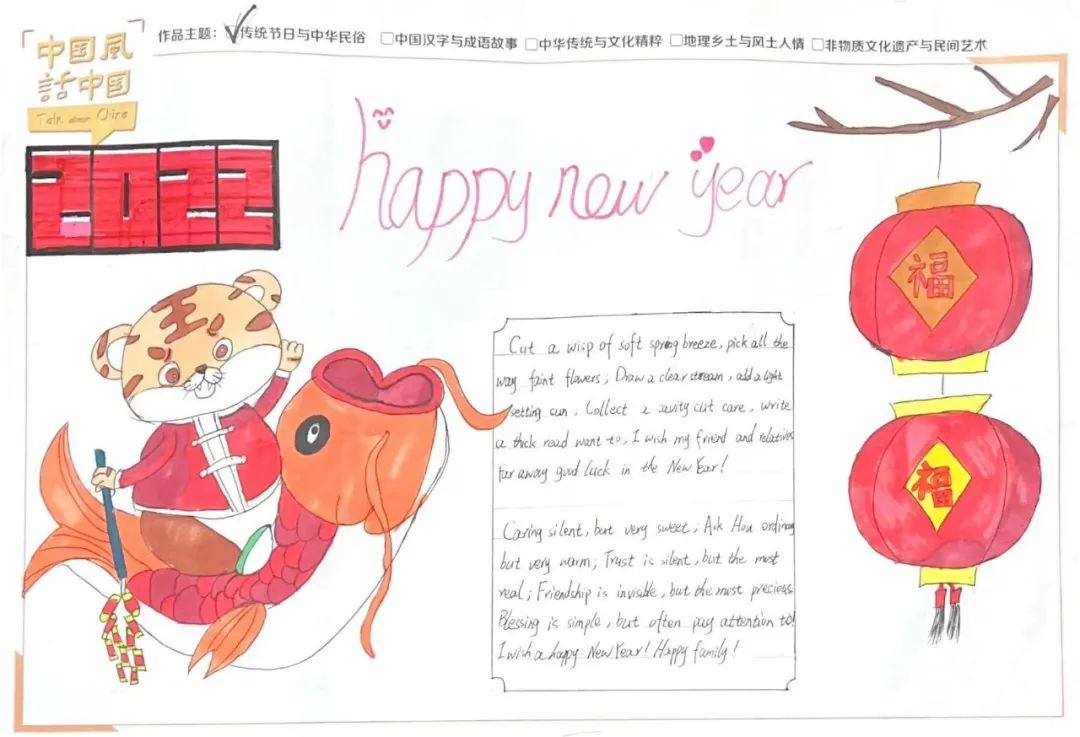 中国风
話中国
Talk about China
作品主题: 传统节日与中华民俗 中国汉字与成语故事 中华传统与文化精粹 地理乡土与风土人情 非物质文化遗产与民间艺术
2022
happy new year
王
福
福
Cut a wisp of soft spring breeze, pick all the
way faint flowers; Draw a clear stream, add a light
setting sun. Collect a cavity cut care, write
a thick read want to, I wish my friend and relatives
far away good luck in the New Year!
Caring silent, but very sweet; Ask How ordinary
but very warm; Trust is silent, but the most
real; Friendship is invisible, but the most precious
Blessing is simple, but often pay attention to!
I wish a happy New Year! Happy family!